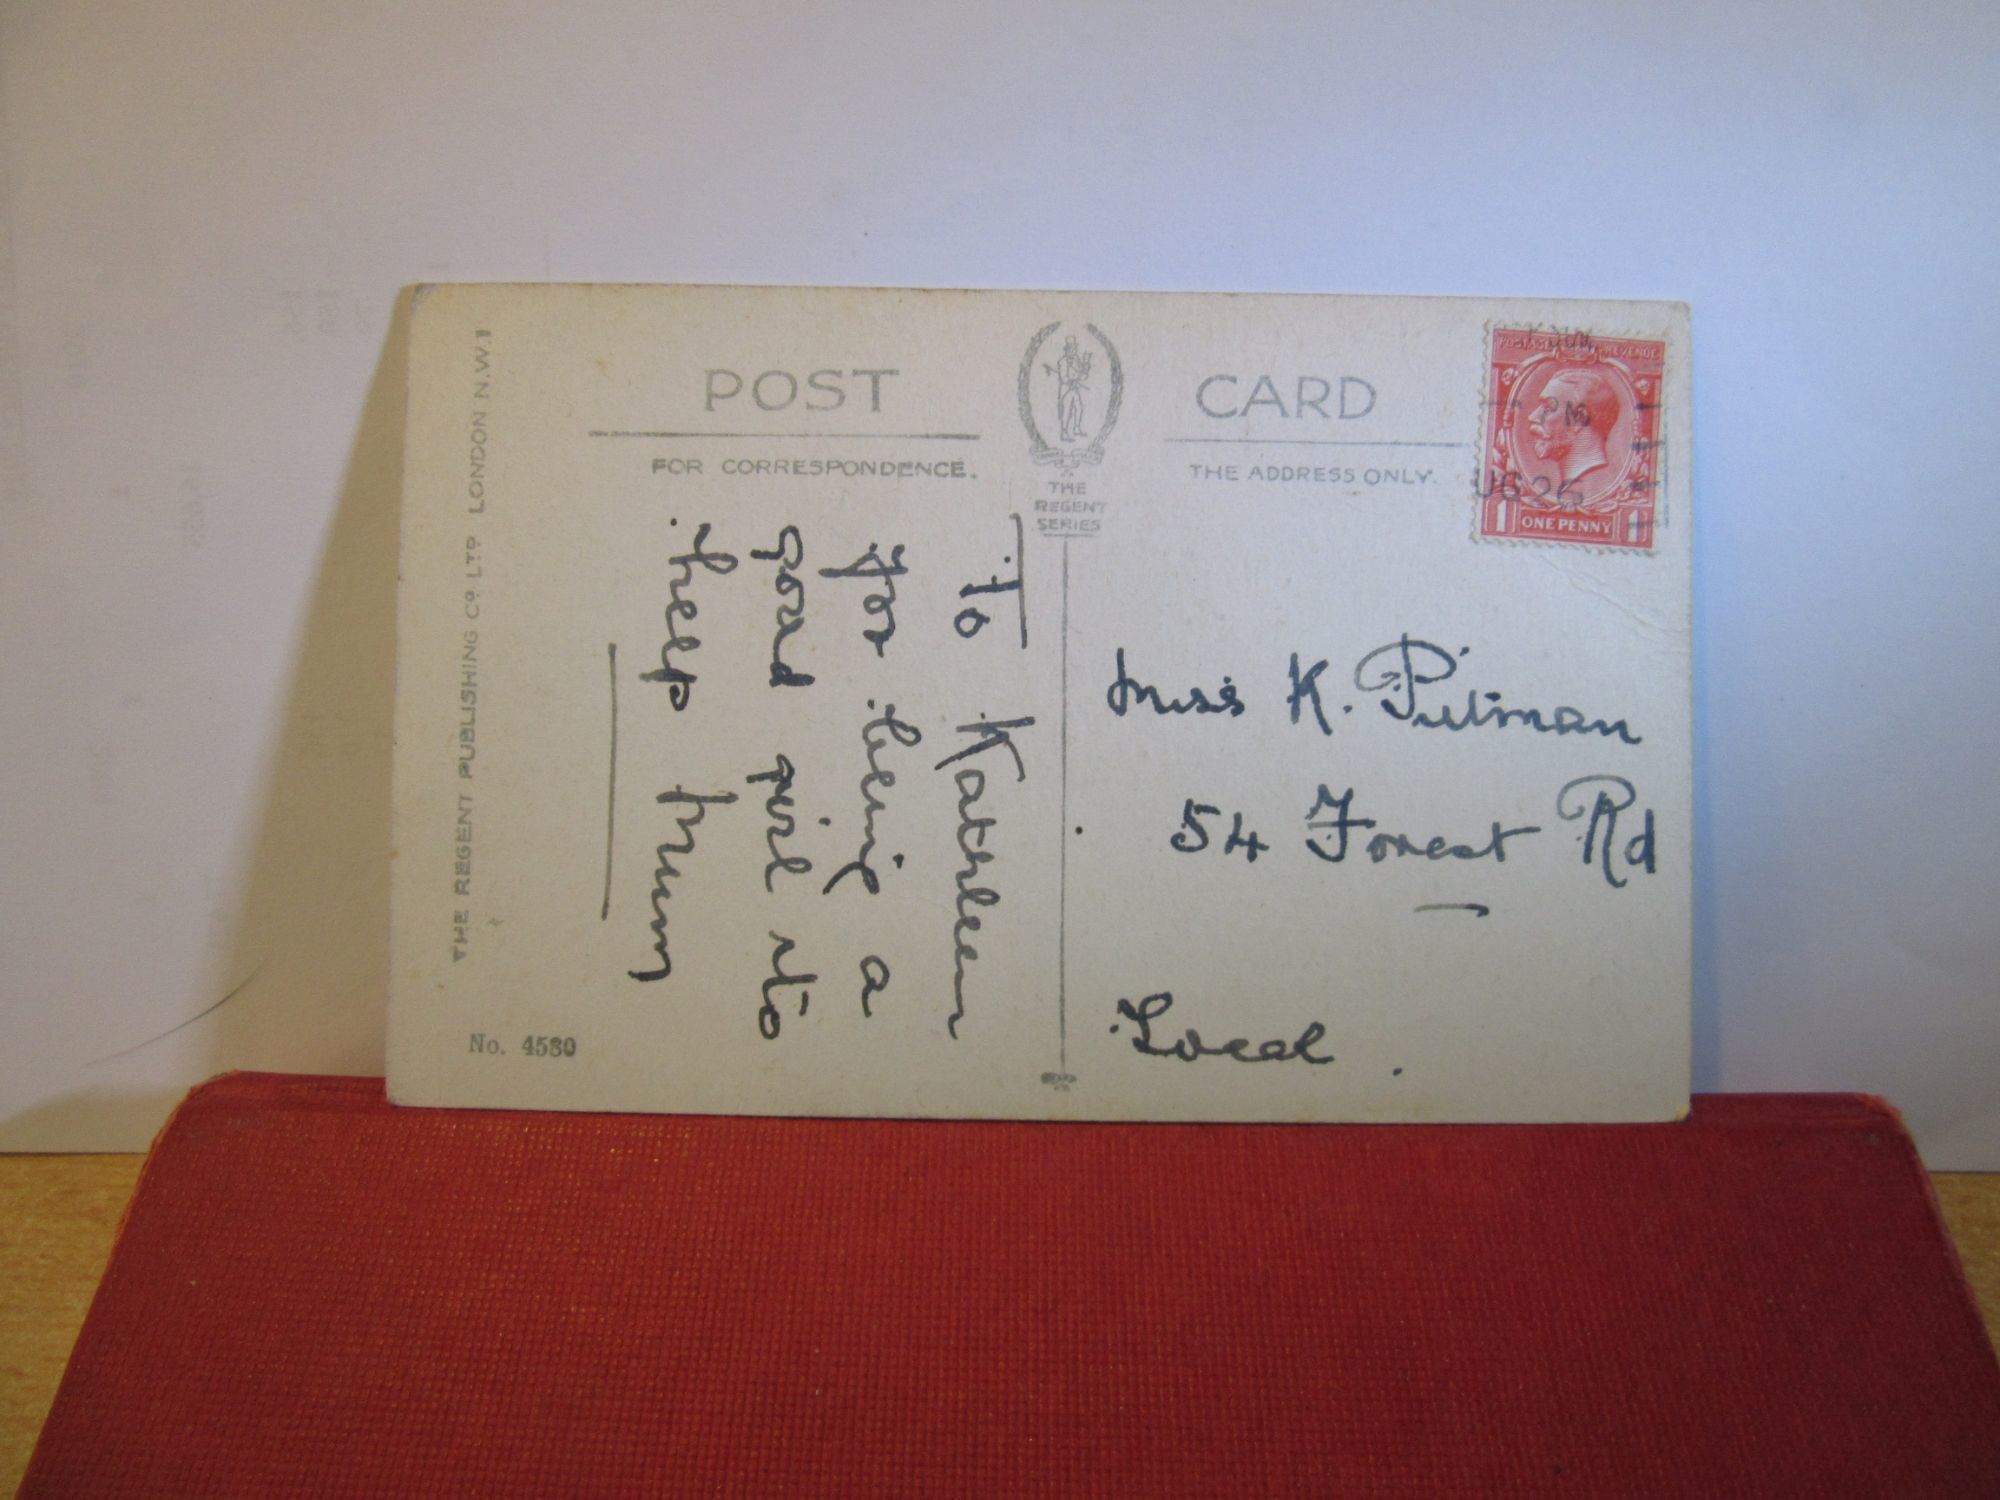 POST CARD
FOR CORRESPONDENCE.
THE ADDRESS ONLY.
THE
REGENT
SERIES
To Kathleen
For being a
good girl to
help Mum
Miss K. Putman
54 Forest Rd
Local.
POSTAGE REVENUE
PM
UG 26
1 ONE PENNY 1
THE REGENT PUBLISHING CO LTD LONDON N.W.1
No. 4530